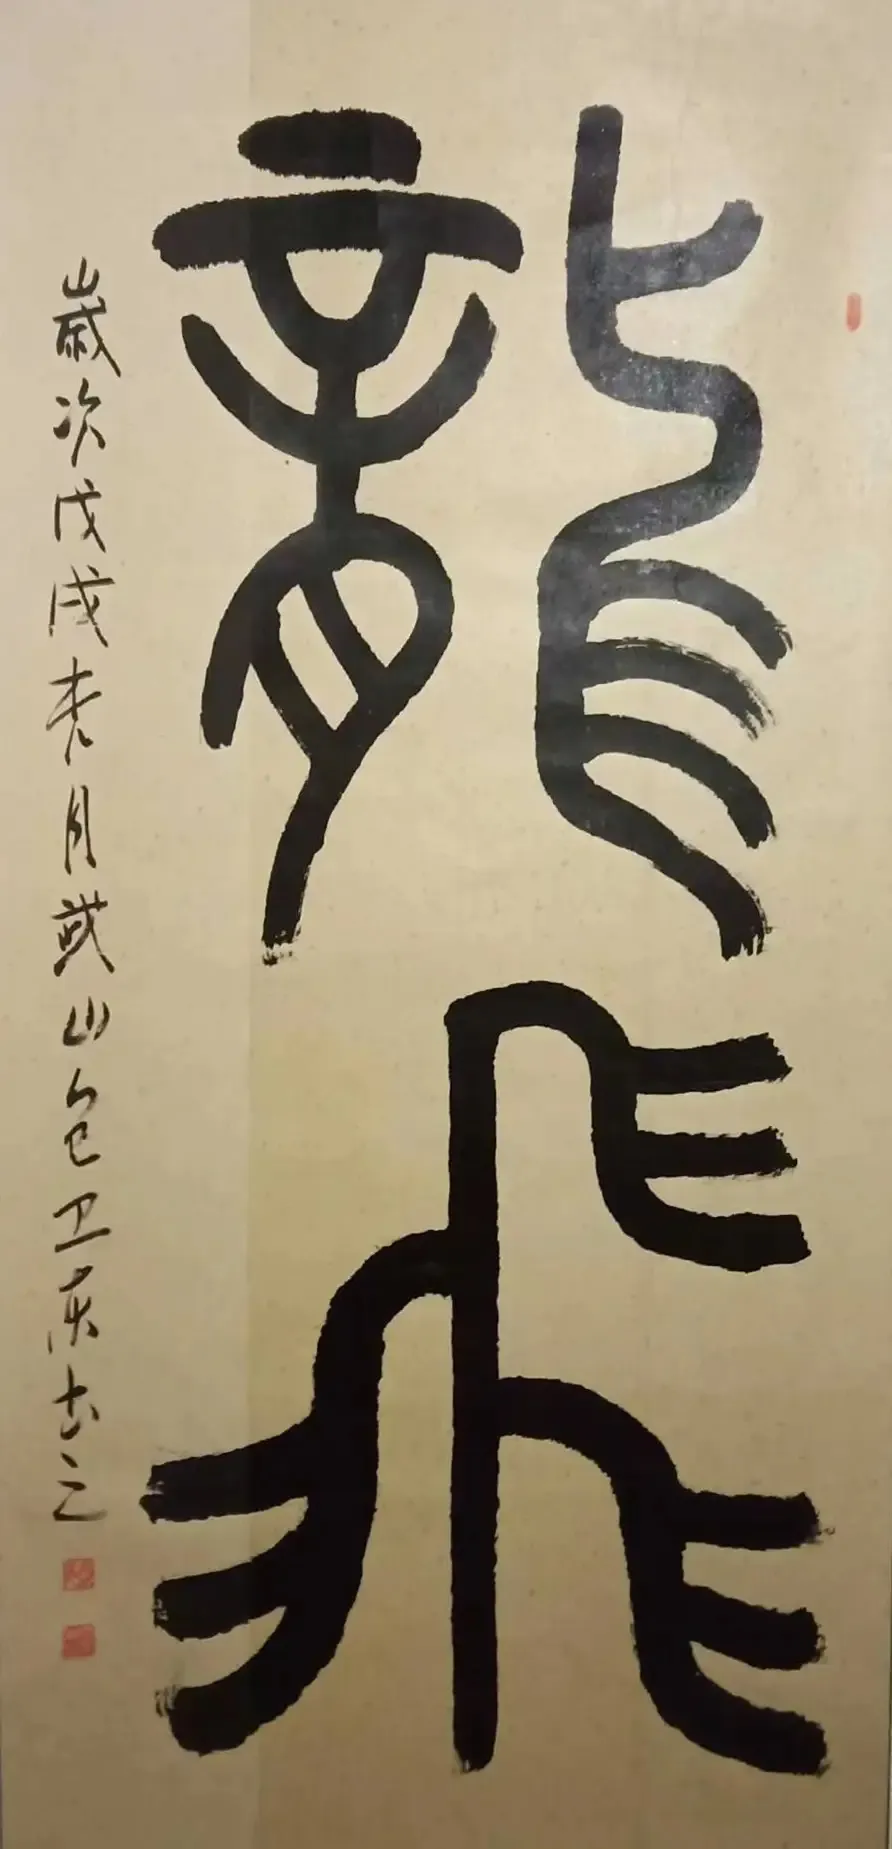 龍飛
歲次戊戌杏月或山包卫东书之